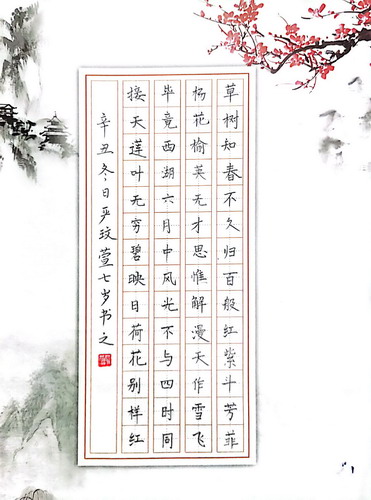 草树知春不久归百般红紫斗芳菲
杨花榆荚无才思惟解漫天作雪飞
毕竟西湖六月中风光不与四时同
接天莲叶无穷碧映日荷花别样红
辛丑冬日严玟萱七岁书之